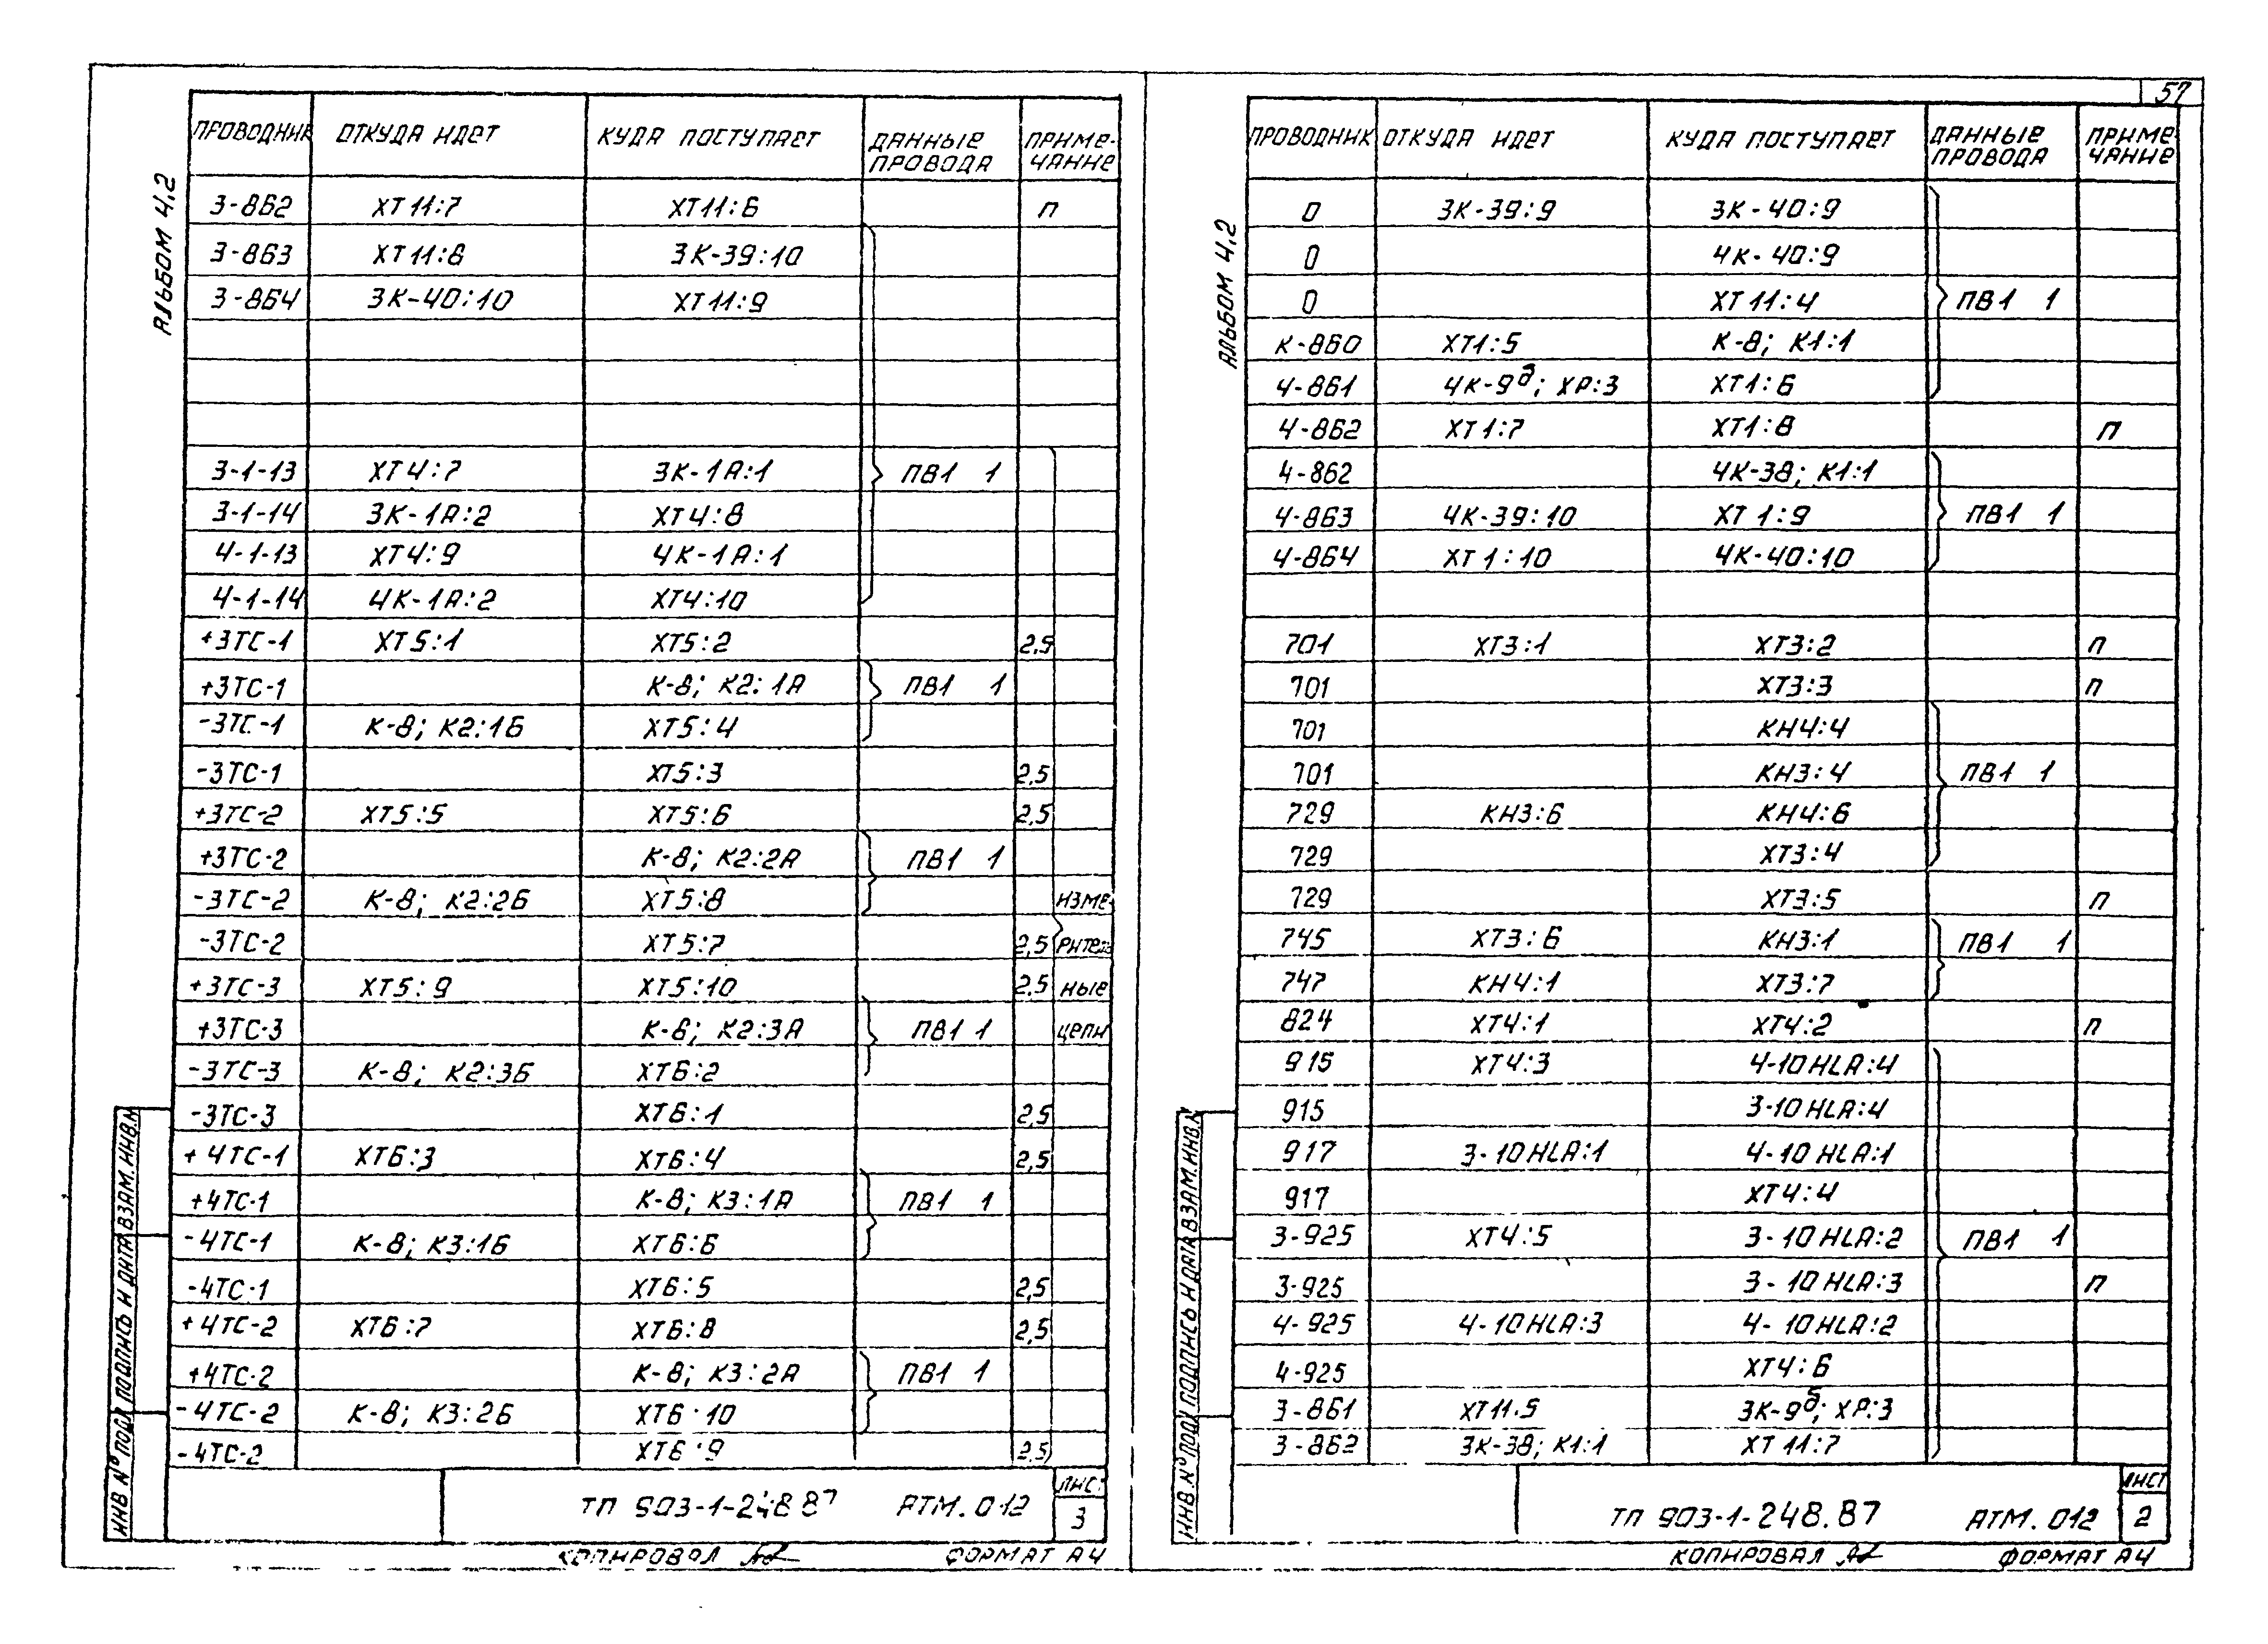 57
АЛЬБОМ 4.2
ПРОВОДНИК ОТКУДА ИДЕТ КУДА ПОСТУПАЕТ ДАННЫЕ ПРОВОДА ПРИМЕ-ЧАНИЕ
3-862 XT11:7 XT11:6 П
3-863 XT11:8 3К-39:10
3-864 3К-40:10 XT11:9
3-1-13 XT4:7 3К-1А:1 ПВ1 1
3-1-14 3К-1А:2 XT4:8
4-1-13 XT4:9 4К-1А:1
4-1-14 4К-1А:2 XT4:10
+3ТС-1 XT5:1 XT5:2 2,5
+3ТС-1 К-8; К2:1А ПВ1 1
-3ТС-1 К-8; К2:1Б XT5:4
-3ТС-1 XT5:3 2,5
+3ТС-2 XT5:5 XT5:6 2,5
+3ТС-2 К-8; К2:2А ПВ1 1
-3ТС-2 К-8; К2:2Б XT5:8 ИЗМЕ-
-3ТС-2 XT5:7 2,5 РИТЕЛЬ
+3ТС-3 XT5:9 XT5:10 2,5 НЫЕ
+3ТС-3 К-8; К2:3А ПВ1 1 ЦЕПИ
-3ТС-3 К-8; К2:3Б XT6:2
-3ТС-3 XT6:1 2,5
+4ТС-1 XT6:3 XT6:4 2,5
+4ТС-1 К-8; К3:1А ПВ1 1
-4ТС-1 К-8; К3:1Б XT6:6
-4ТС-1 XT6:5 2,5
+4ТС-2 XT6:7 XT6:8 2,5
+4ТС-2 К-8; К3:2А ПВ1 1
-4ТС-2 К-8; К3:2Б XT6:10
-4ТС-2 XT6:9 2,5
ИНВ № ПОДЛ ПОДПИСЬ И ДАТА ВЗАМ. ИНВ. №
ТП 903-1-248.87 АТМ.012 ЛИСТ 3
КОПИРОВАЛ ФОРМАТ А4
АЛЬБОМ 4.2
ПРОВОДНИК ОТКУДА ИДЕТ КУДА ПОСТУПАЕТ ДАННЫЕ ПРОВОДА ПРИМЕ ЧАНИЕ
0 3К-39:9 3К-40:9
0 4К-40:9
0 XT11:4 ПВ1 1
К-860 XT1:5 К-8; К1:1
4-861 4К-9б; ХР:3 XT1:6
4-862 XT1:7 XT1:8 П
4-862 4К-38; К1:1
4-863 4К-39:10 XT1:9 ПВ1 1
4-864 XT1:10 4К-40:10
701 XT3:1 XT3:2 П
701 XT3:3 П
701 КН4:4
701 КН3:4 ПВ1 1
729 КН3:6 КН4:6
729 XT3:4
729 XT3:5 П
745 XT3:6 КН3:1 ПВ1 1
747 КН4:1 XT3:7
824 XT4:1 XT4:2 П
915 XT4:3 4-10HLA:4
915 3-10HLA:4
917 3-10HLA:1 4-10HLA:1
917 XT4:4
3-925 XT4:5 3-10HLA:2 ПВ1 1
3-925 3-10HLA:3 П
4-925 4-10HLA:3 4-10HLA:2
4-925 XT4:6
3-861 XT11.5 3К-9б; ХР:3
3-862 3К-38; К1:1 XT11:7
ИНВ. № ПОДЛ ПОДПИСЬ И ДАТА ВЗАМ. ИНВ. №
ТП 903-1-248.87 АТМ.012 ЛИСТ 2
КОПИРОВАЛ ФОРМАТ А4